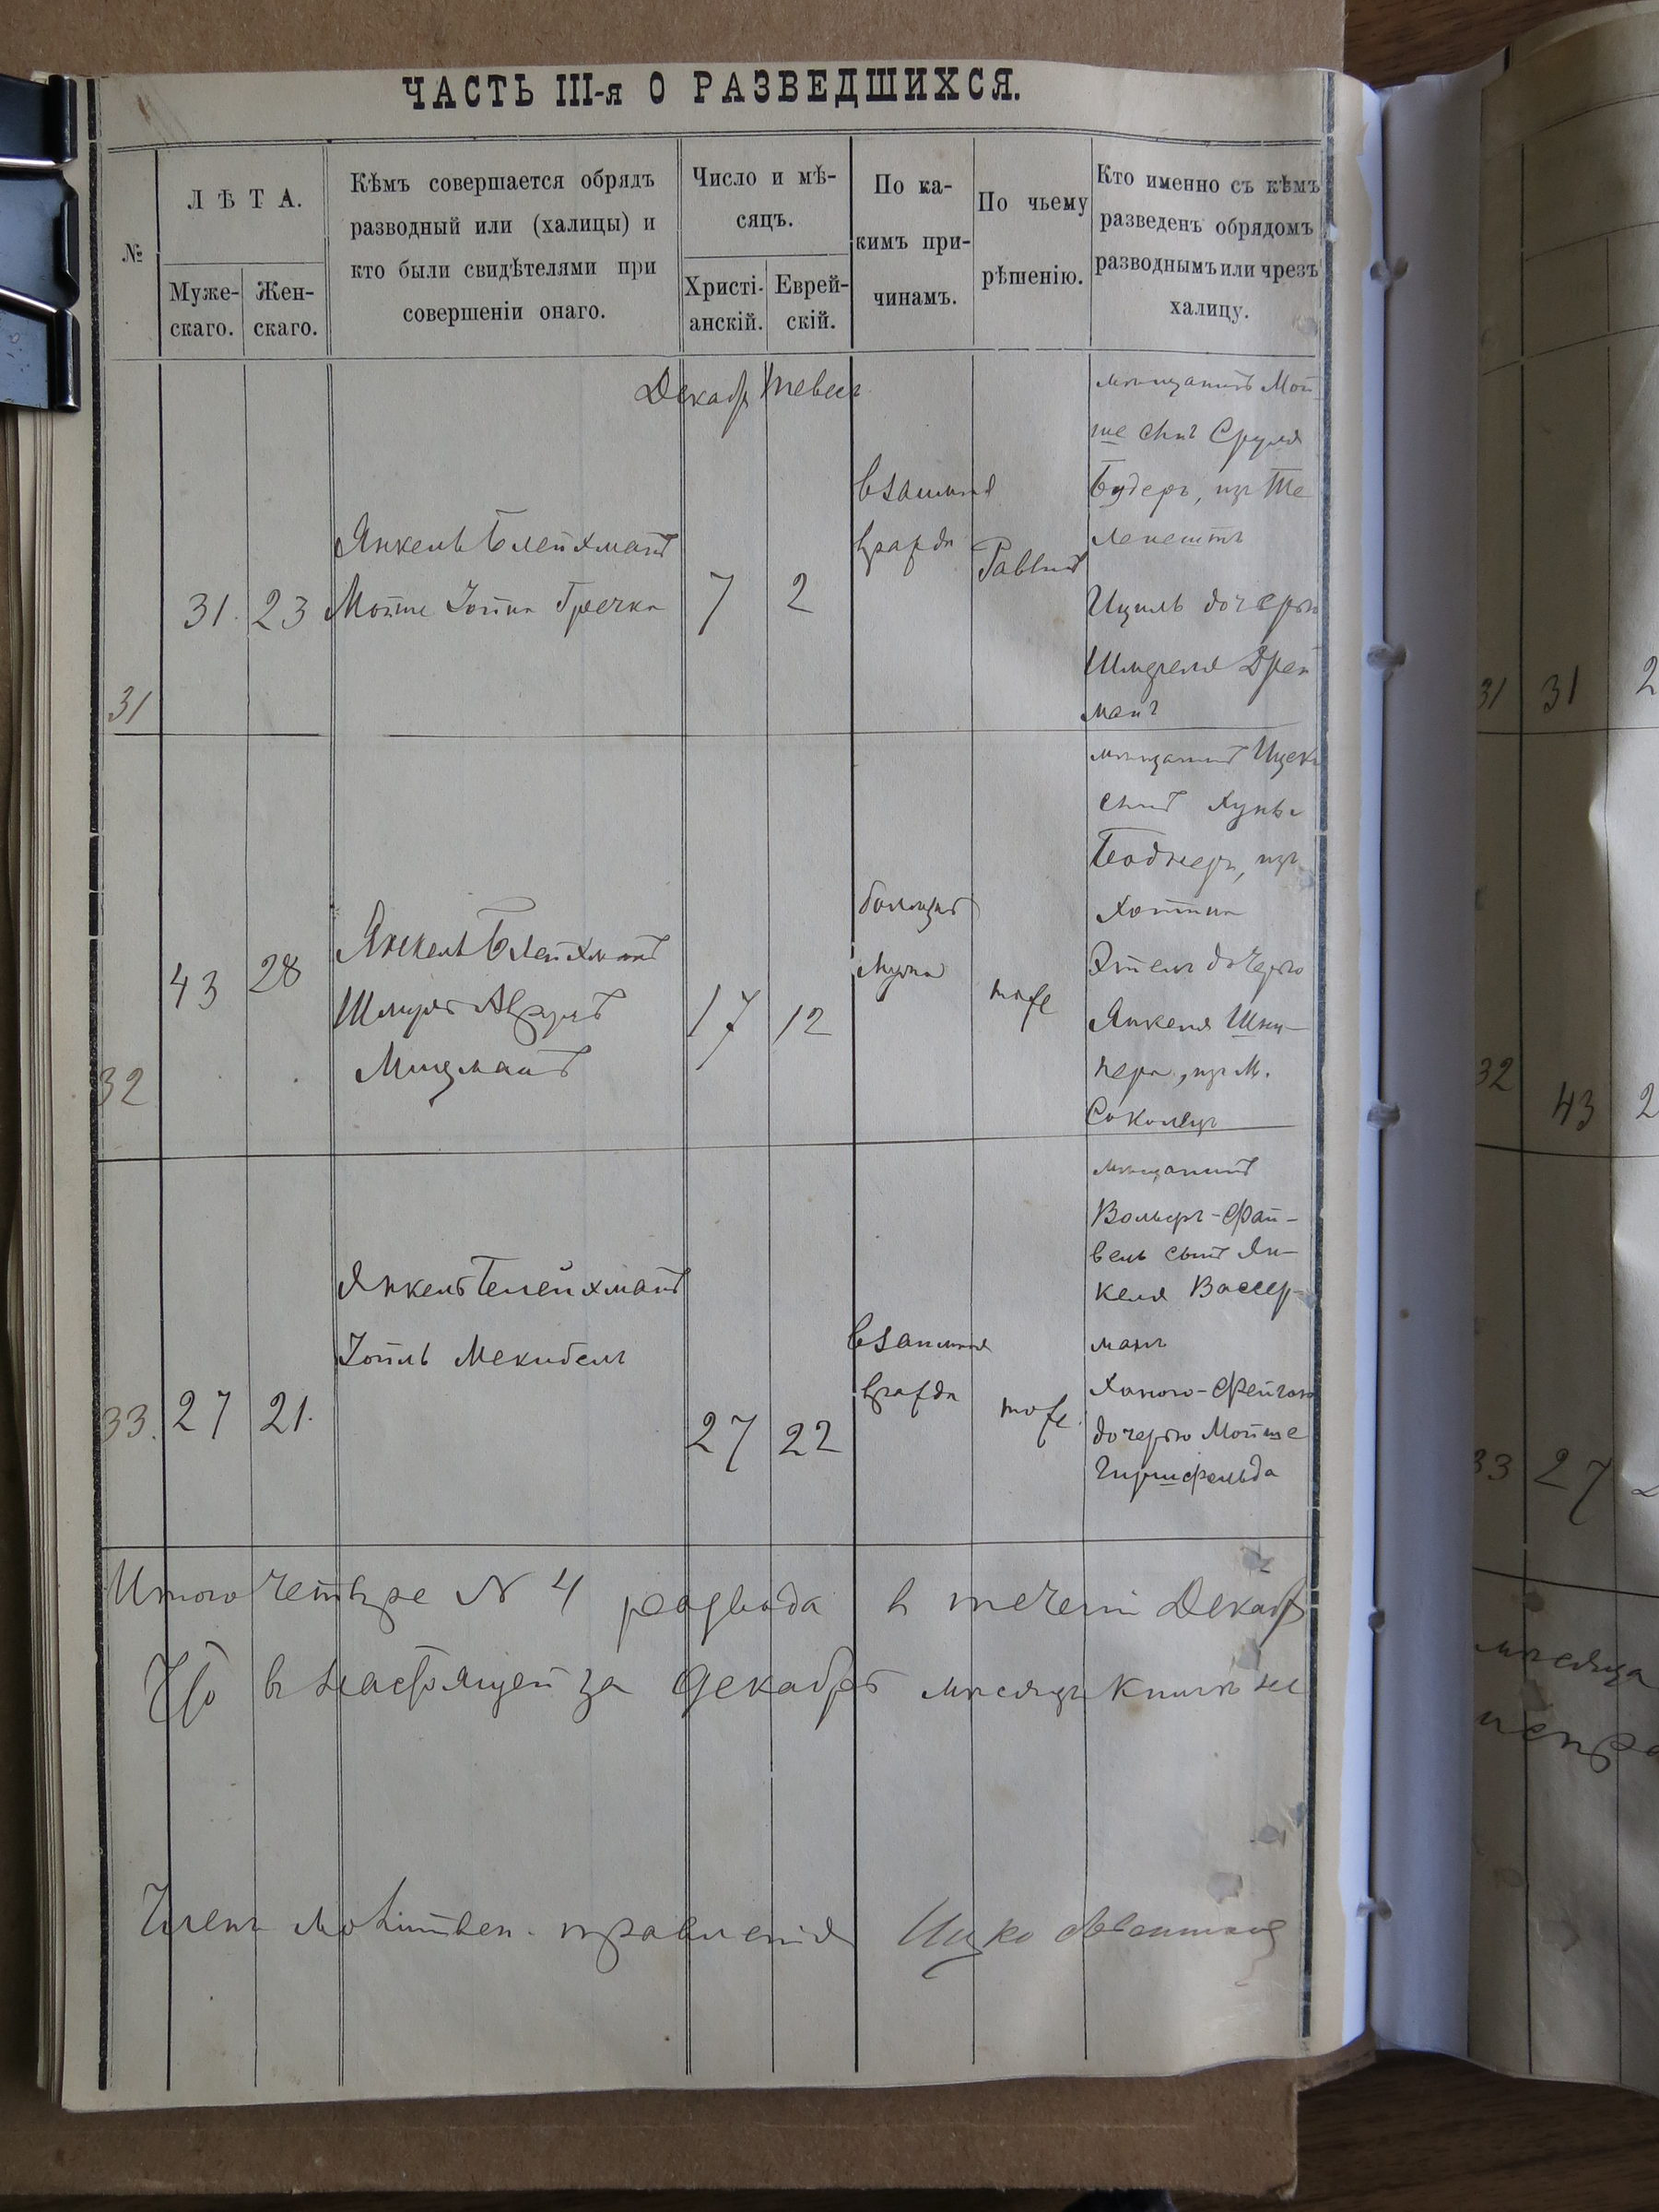 ЧАСТЬ III-я О РАЗВЕДШИХСЯ.
№
ЛѢТА.
Муже-
скаго.
Жен-
скаго.
Кѣмъ совершается обрядъ
разводный или (халицы) и
кто были свидѣтелями при
совершеніи онаго.
Число и мѣ-
сяцъ.
Христі-
анскій.
Еврей-
скій.
По ка-
кимъ при-
чинамъ.
По чьему
рѣшенію.
Кто именно съ кѣмъ
разведенъ обрядомъ
разводнымъ или чрезъ
халицу.
Декабр Тевес
31
31. 23
Янкель Блейхманъ
Мотте Гречка
7
2
взаимная
вражда
Раввинъ
мѣщанинъ Мой-
ше сынъ Сруля
Будеръ, изъ Те
ленештъ
дочерью
Шмереля Дрей
манъ
32
43
28
Янкель Блейхманъ
Шмуль
17
12
мужа
тоже
мѣщанинъ Ицекъ
сынъ
Боднеръ, изъ
Хотина
Этель дочерью
Янкеля Шни-
пера, изъ М.
Соколецъ
33.
27
21.
Янкель Блейхманъ
27
22
взаимная
вражда
тоже.
мѣщанинъ
Вольфъ-Фай-
вель сынъ Ян-
келя Вассер-
манъ
Ханою-Фейгою
дочерью Мойше
Гиршфельда
Итого четыре № 4 развода в течени Декабр
Что в настоящей за Декабрь месяцъ книгѣ не
Членъ Молитвен. правленія Ицко
31 31 2
32 43 2
33 27
мѣсяца